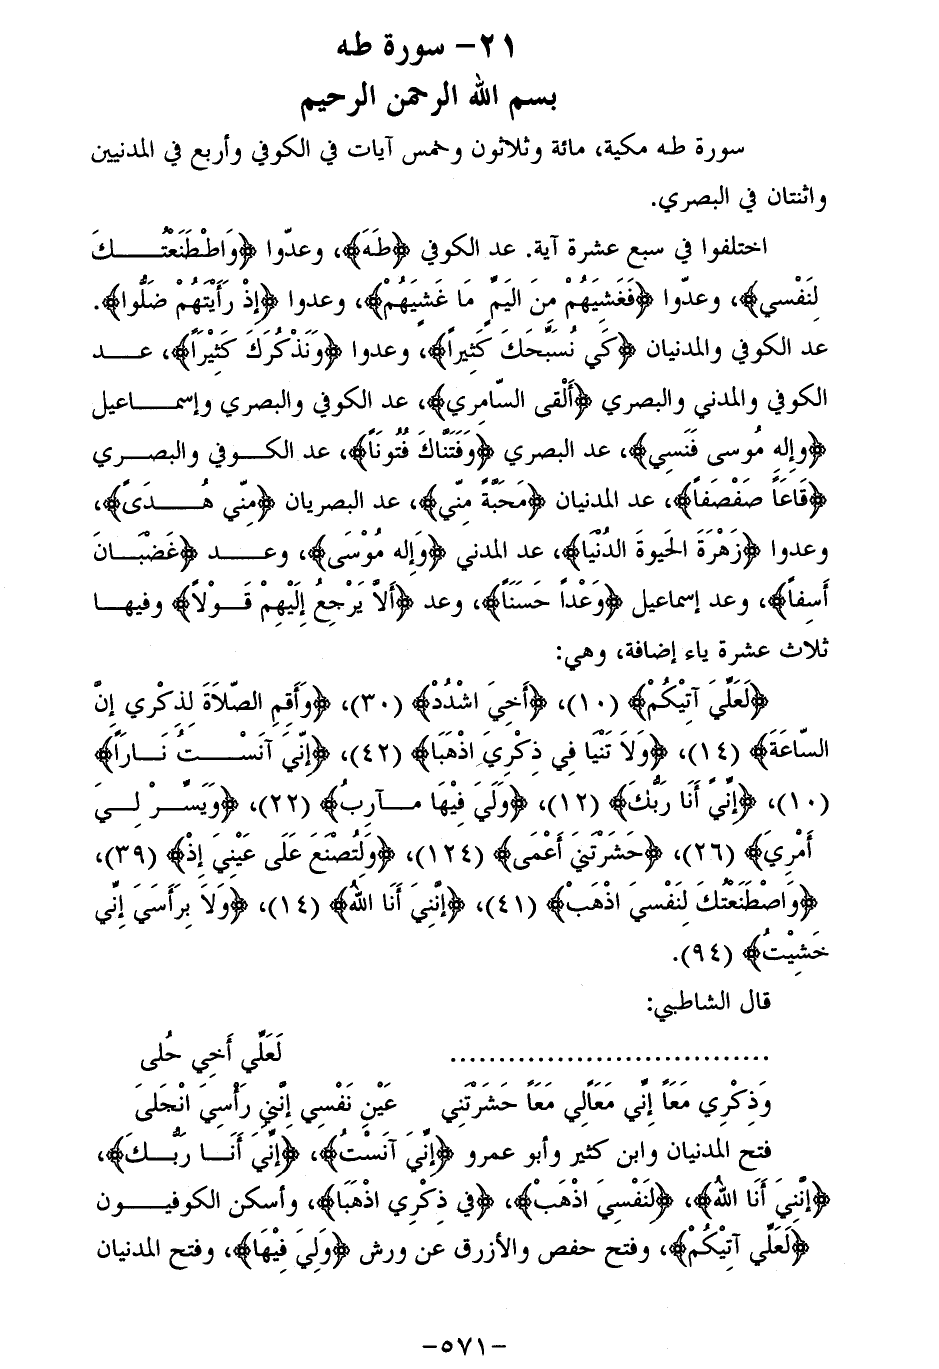 ٢١- سورة طه
بسم الله الرحمن الرحيم
سورة طه مكية، مائة وثلاثون وخمس آيات في الكوفي وأربع في المدنيين
واثنتان في البصري.
اختلفوا في سبع عشرة آية. عد الكوفي ﴿طَهَ﴾، وعدّوا ﴿وَاطْطَنَعْتُـــكَ
لِنَفْسي﴾، وعدّوا ﴿فَغَشِيَهُمْ مِنَ اليَمِّ مَا غَشِيَهُمْ﴾، وعدوا ﴿إذْ رَأَيْتَهُمْ ضَلُّوا﴾.
عد الكوفي والمدنيان ﴿كَي نُسَبِّحَكَ كَثِيراً﴾، وعدوا ﴿وَنَذْكُرَكَ كَثْيرَاً﴾، عـــد
الكوفي والمدني والبصري ﴿أَلْقى السّامِري﴾، عد الكوفي والبصري وإسمـــاعيل
﴿وإلهِ مُوسى فَنَسِي﴾، عد البصري ﴿وَفَتَنَّاكَ فُتُونَاً﴾، عد الكـوفي والبصـري
﴿قَاعَاً صَفْصَفاً﴾، عد المدنيان ﴿مَحَبَّةً مِنّي﴾، عد البصريان ﴿مِنّي هُـــدَىً﴾،
وعدوا ﴿زَهْرَةَ الحَيوةَ الدُنْيَا﴾، عد المدني ﴿وَإله مُوْسَى﴾، وعـــد ﴿غَضْبَـانَ
أَسِفاً﴾، وعد إسماعيل ﴿وَعْداً حَسَنَاً﴾، وعد ﴿أَلاَّ يَرْجِعُ إِلَيْهِمْ قَـوْلاً﴾ وفيهـا
ثلاث عشرة ياء إضافة، وهي:
﴿لَعَلَّيَ آتِيكُمْ﴾ (١٠)، ﴿أَخِيَ اشْدُدْ﴾ (٣٠)، ﴿وَأَقِمِ الصّلاَةَ لِذِكْرِي إنَّ
السّاعَةَ﴾ (١٤)، ﴿وَلاَ تَنْيَا فِي ذِكْرِيَ اذْهَبَا﴾ (٤٢)، ﴿إِنّيَ آنَسْـــتُ نَـاراً﴾
(١٠)، ﴿إِنِّيَ أَنَا رَبُّكَ﴾ (١٢)، ﴿وَلَيَ فِيْهَا مـآرِبُ﴾ (٢٢)، ﴿وَيَسِّـرْ لِـيَ
أَمْرِيَ﴾ (٢٦)، ﴿حَشَرْتَنِيَ أَعْمَى﴾ (١٢٤)، ﴿وَلِتُصْنَعَ عَلَى عَيْنِيَ إذْ﴾ (٣٩)،
﴿وَاصْطَنَعْتُكَ لِنَفْسيَ اذْهَبْ﴾ (٤١)، ﴿إِنَّنِيَ أَنَا اللهُ﴾ (١٤)، ﴿وَلاَ بِرَأْسَيَ إنِّي
خَشيْتُ﴾ (٩٤).
قال الشاطبي:
................................ لَعَلّي أَخِي حُلى
وَذِكْرِي مَعَاً إنِّي مَعَاًلِي مَعَاً حَشَرْتَنِي عَيْنِ نَفْسِي إِنَّنِي رَأْسِيَ انْجَلىَ
فتح المدنيان وابن كثير وأبو عمرو ﴿إنّيَ آنَسْتُ﴾، ﴿إنِّيَ أَنَـا رَبُّـكَ﴾،
﴿إِنَّنِيَ أَنَا اللهُ﴾، ﴿لنَفْسيَ اذْهَبْ﴾، ﴿في ذكْري اذْهَبَا﴾، وأسكن الكوفيـــون
﴿لَعَلّي آتِيْكُمْ﴾، وفتح حفص والأزرق عن ورش ﴿وَلِيَ فِيْهَا﴾، وفتح المدنيان
-٥٧١-